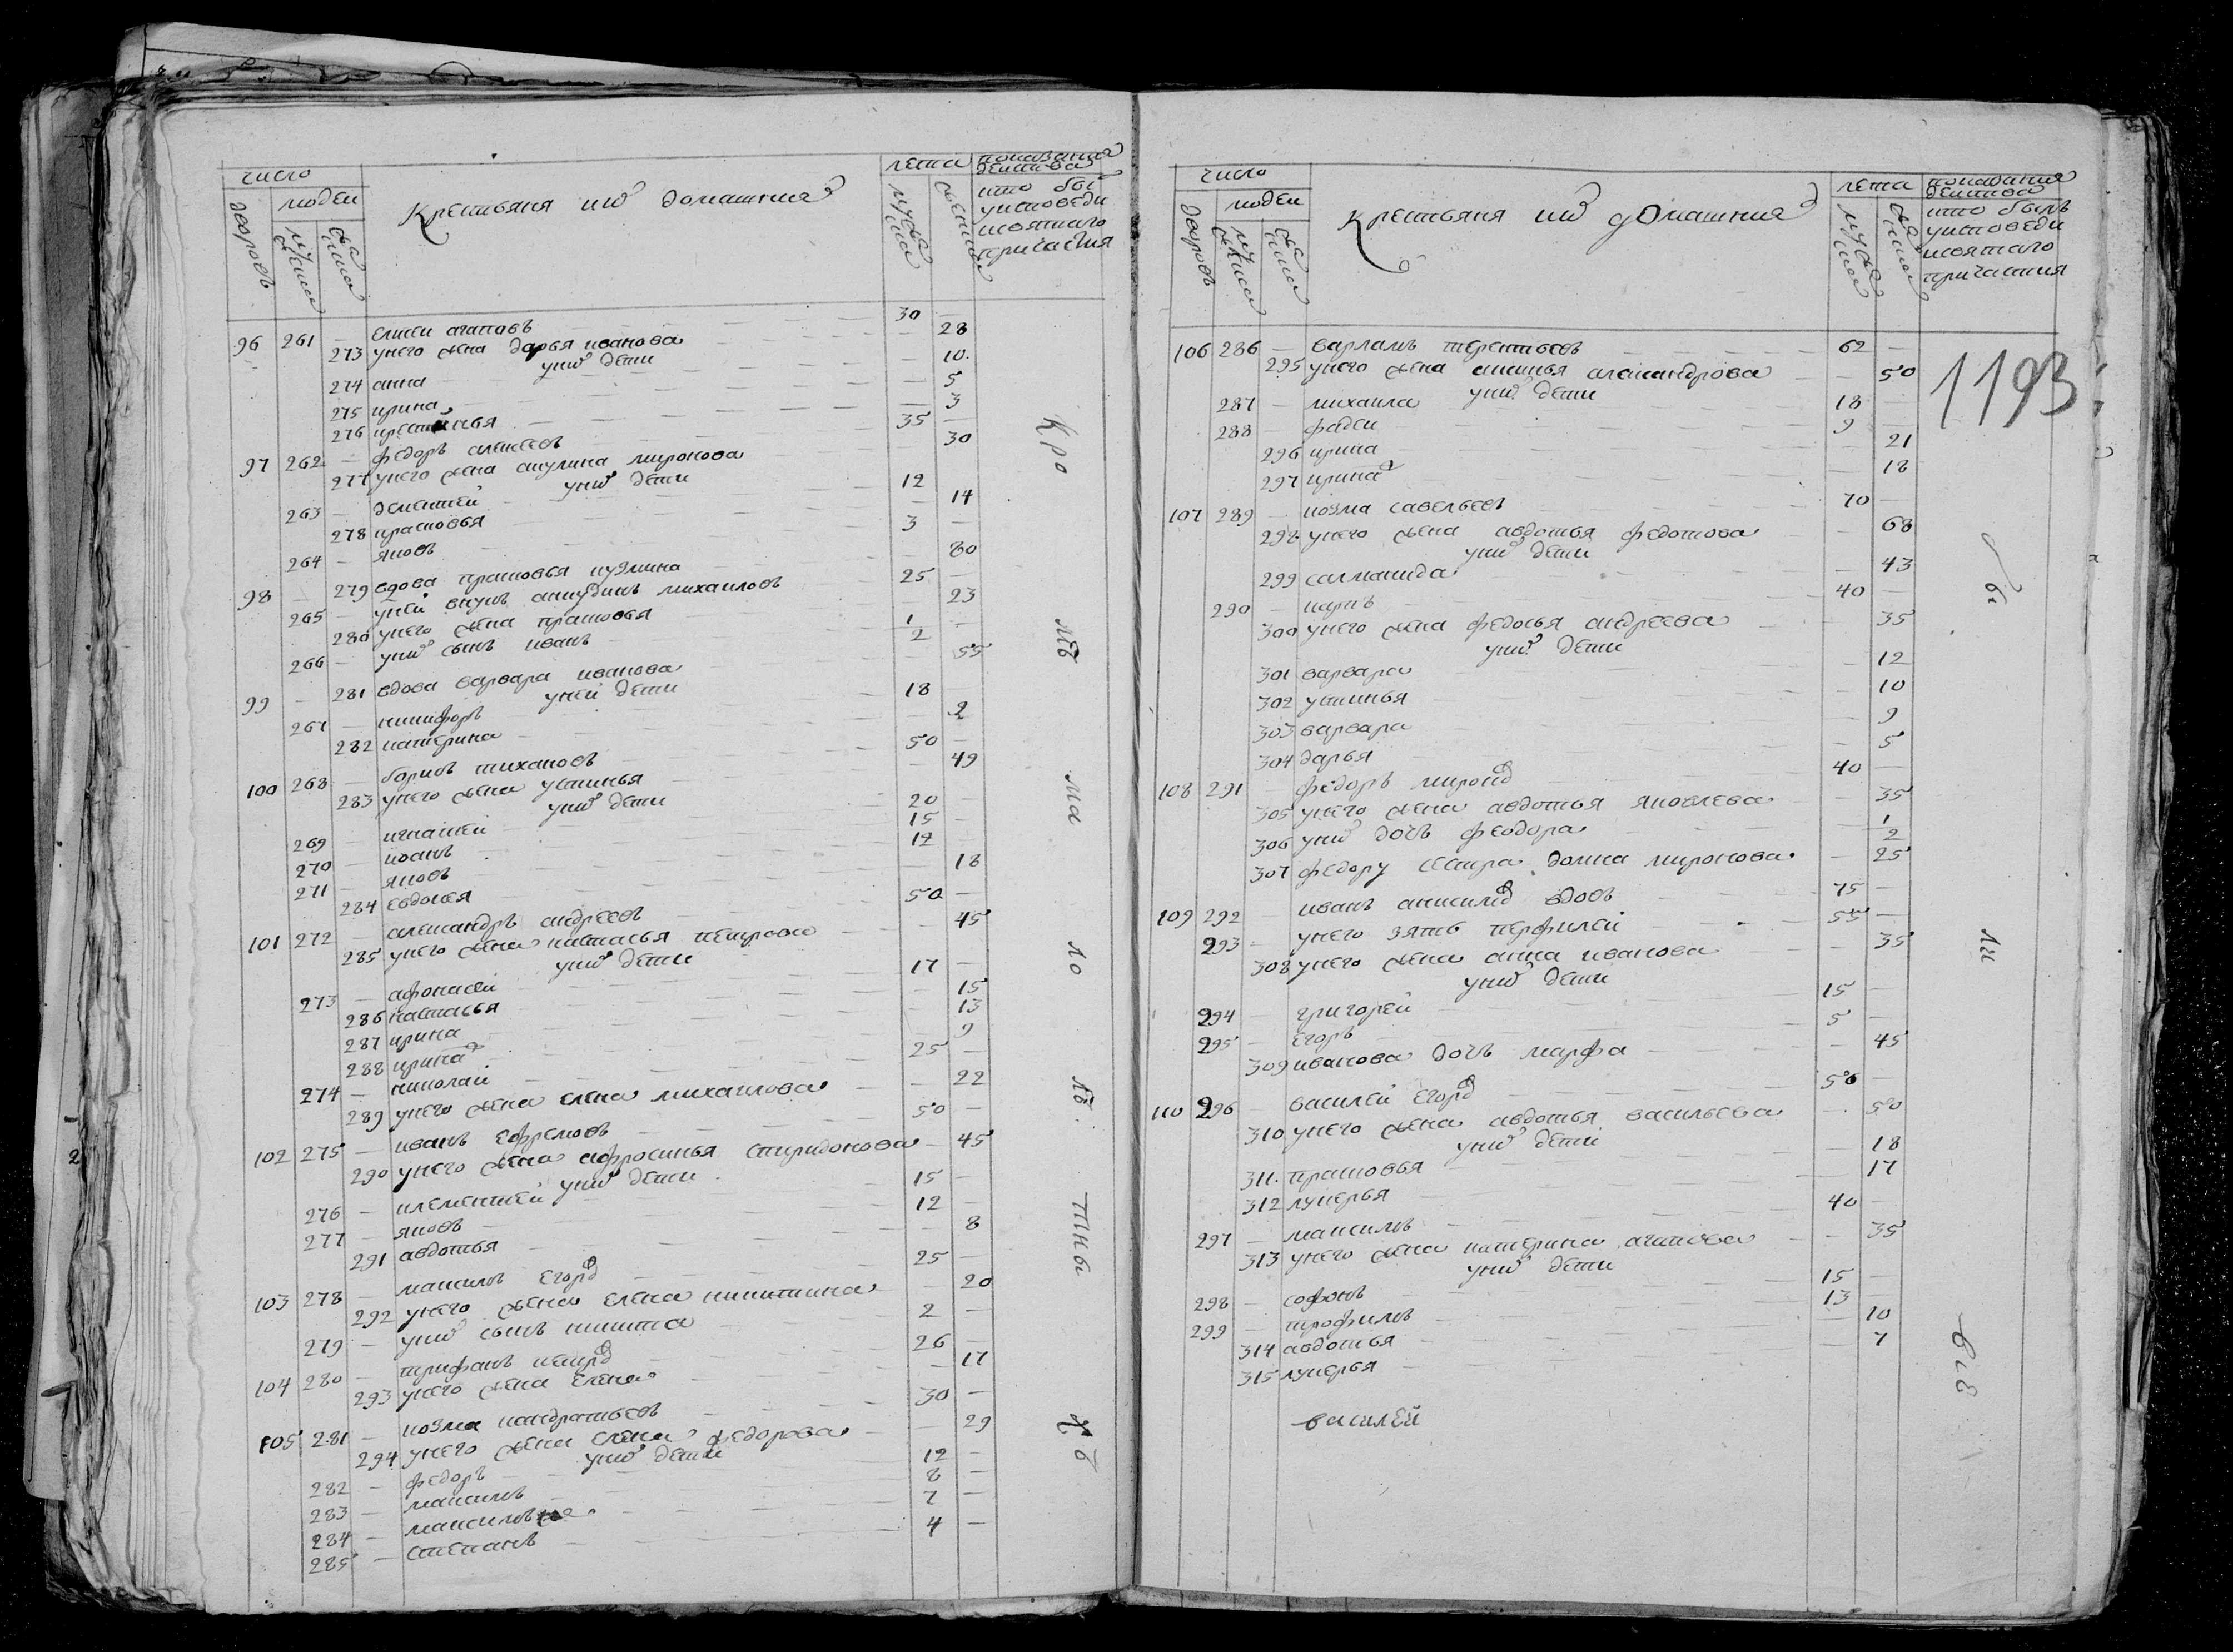 число
людеи
дворовъ
мужеска
женска
Крестьяня ихъ домашния
лета
мужеска
женска
показания
деиства
кто бы
уисповеди
исвятаго
причастия
96 261 — елисеи агаповъ — 30 —
273 унего жена дарья иванова — 28
унихъ дети
274 анна — 10.
275 ирина — 5
276 — 3
97 262 — федоръ алексеевъ — 35 —
277 унего жена акулина миронова — 30
унихъ дети
263 — дементеи — 12
278 прасковья — 14
264 — яковъ — 3 —
98 — 279 вдова прасковья кузмина — 80
265 — уней внукъ михаиловъ — 25 —
280 унего жена прасковья — 23
266 — унихъ сынъ иванъ — 1/2
99 — 281 вдова варвара иванова — 55
уней дети
267 — никифоръ — 18
282 катерина — 2
100 268 — борисъ тихановъ — 50 —
283 унего жена устинья — 49
унихъ дети
269 — игнатей — 20 —
270 — иванъ — 15 —
271 — яковъ — 12
284 евдокея — 18
101 272 — александръ андреевъ — 50 —
285 унего жена настасья петрова — 45
унихъ дети
273 — афонасеи — 17 —
286 настасья — 15
287 ирина — 13
288 ирина — 9
274 — николаи — 25 —
289 унего жена елена михаилова — 22
102 275 — иванъ ефремовъ — 50 —
290 унего жена афросинья спиридонова — 45
унихъ дети
276 — клементеи — 15 —
277 — яковъ — 12 —
291 авдотья — 8
103 278 — максимъ егоръ — 25 —
292 унего жена елена никитина — 20
279 — унихъ сынъ никита — 2 —
104 280 — трифанъ петръ — 26 —
293 унего жена елена — 17
105 281 — козма кандратьевъ — 30 —
294 унего жена елена федорова — 29
унихъ дети
282 — федоръ — 12 —
283 — максимъ — 8 —
284 — максимъ — 7 —
285 — степанъ — 4 —
Кро
мѣ
ма
ло
лѣ
тны
хъ
число
людеи
дворовъ
мужеска
женска
крестьяня ихъ домашния
лета
мужеска
женска
показания
деиства
кто былъ
уисповеди
исвятаго
причастия
1193
106 286 — варламъ терентьевъ — 62 —
295 унего жена аксинья александрова — 50
унихъ дети
287 — михаила — 18
288 — фадеи — 9 —
296 ирина — 21
297 ирина — 18
107 289 — козма савельевъ — 70 —
298 унего жена авдотья федотова — 68
унихъ дети
299 саламанида — 43
290 — карпъ — 40 —
300 унего жена федосья андреева — 35
унихъ дети
301 варвара — 12
302 устинья — 10
303 варвара — 9
304 дарья — 5
108 291 — федоръ миронъ — 40 —
305 унего жена авдотья яковлева — 35
306 унихъ дочь феодора — 1/2
307 федору сестра домна миронова — 25
109 292 иванъ вдовъ — 75 —
293 — унего зять перфилеи — 55 —
308 унего жена анна иванова — 35
унихъ дети
294 — григореи — 15 —
295 — егоръ — 5 —
309 иванова дочь марфа — 45
110 296 — василеи егоръ — 56 —
310 унего жена авдотья васильева — 50
унихъ дети
311. прасковья — 18
312 лукерья — 17
297 — максимъ — 40 —
313 унего жена катерина агапова — 35
унихъ дети
298 — софонъ — 15 —
299 — трофимъ — 13 —
314 авдотья — 10
315 лукерья — 7
василей
бы
ли
всѣ